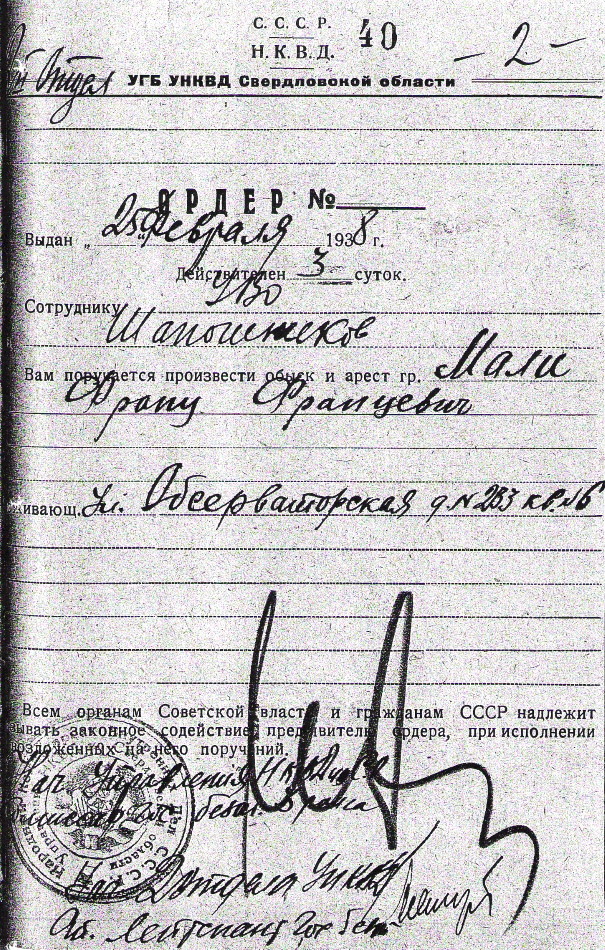 С. С. С. Р.
Н. К. В. Д. 40 — 2 —
Отдел УГБ УНКВД Свердловской области
ОРДЕР №
Выдан „25" Февраля 1938 г.
Действителен 3 суток.
Сотруднику УВО
Шапошников
Вам поручается произвести обыск и арест гр. Мали
Франц Францевич
живающ. Ул. Обсерваторская д. № 233 кв. № 6
Всем органам Советской власти и гражданам СССР надлежит
ывать законное содействие предъявителю ордера, при исполнении
возложенных на него поручений.
Нач. Управления НКВД
безоп.
Нач. Отдела УНКВД
Лейтенант Гос